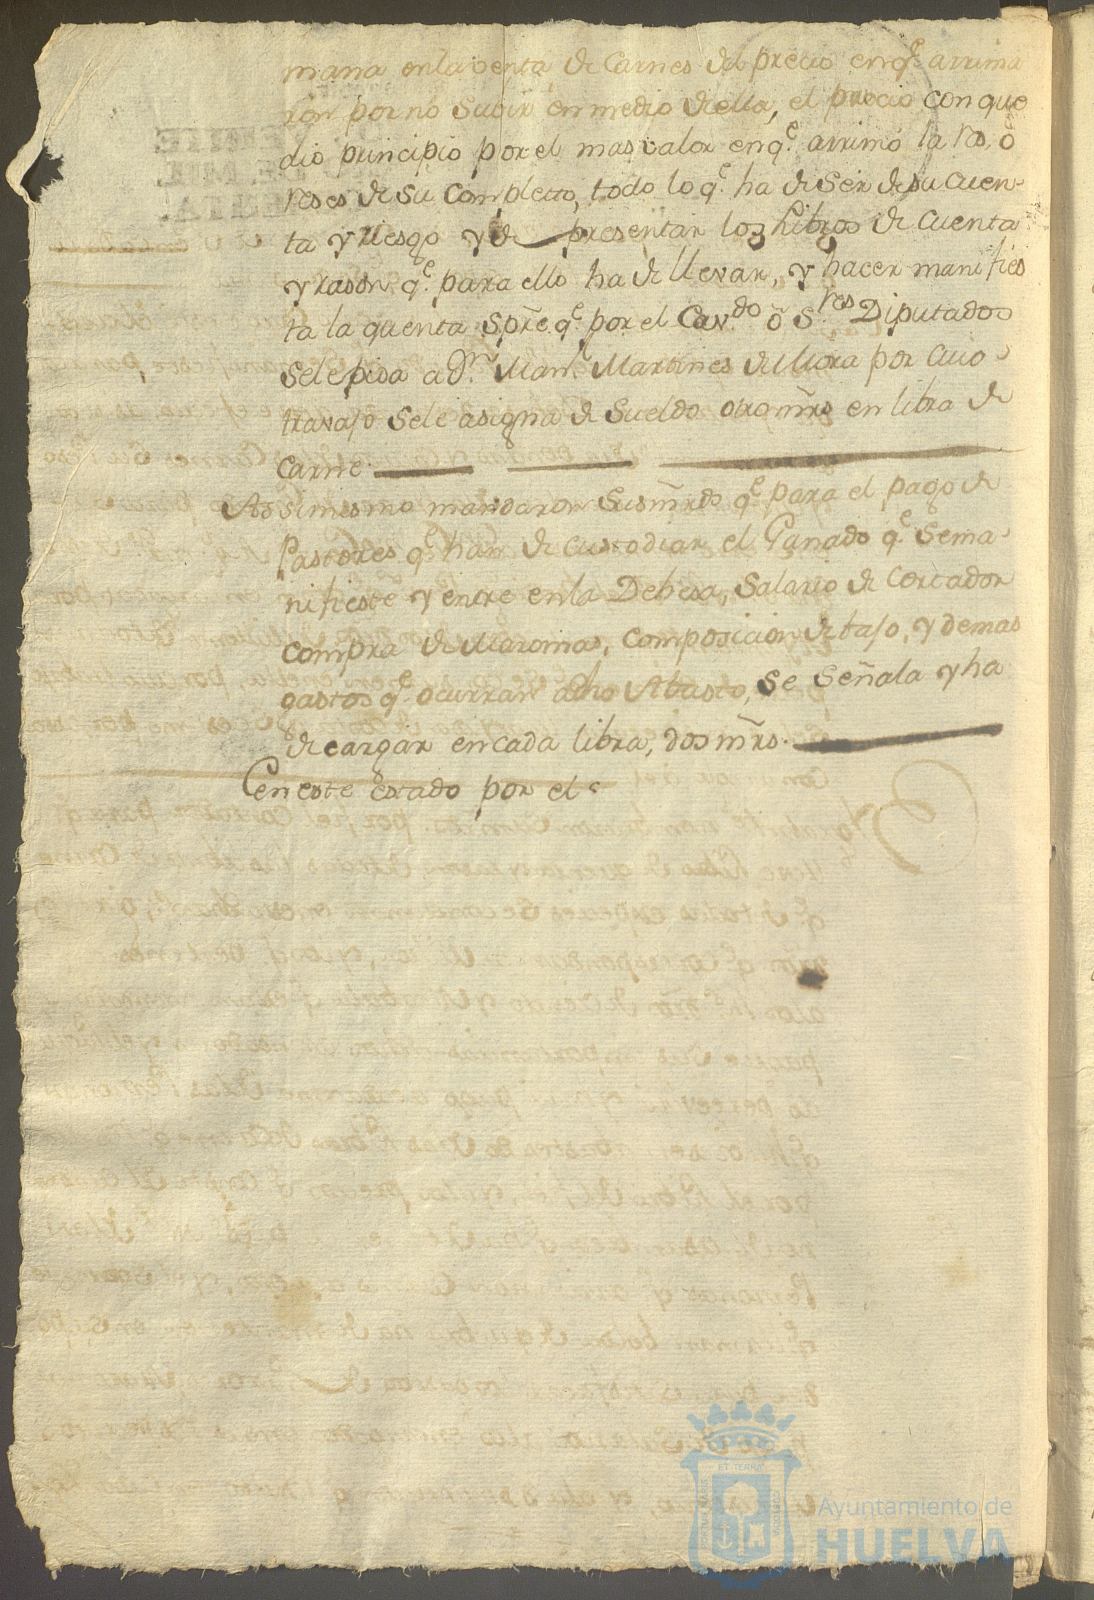 mana en la venta de Carnes del precio en q.e arrima
ron por no Subir en medio de ella, el precio con que
dio principio por el mas valor en q.e arrimó la res, ò
reses de su Completo, todo lo q.e ha de Ser de su cuen-
ta y riesgo y de presentar los Libros de Cuenta
y rason q.e para ello ha de llevar, y hacer manifies
ta la quenta Spre q.e por el Cav.do ô S.res Diputados
Sele pida a d.n Man.l Martines de Mora por cuio
travajo Sele asigna de Sueldo otro mrs en libra de
Carne.
Assimesmo mandaron Sus mrds q.e para el pago de
Pastores q.e han de custodiar el Ganado q.e Sema-
nifieste y entre en la Dehesa, Salario de Cortador
compra de Maromas, composicion de tajo, y demas
gastos q.e ocurran a dho Abasto, se Señala y ha
de cargar en cada libra, dos mrs.
En este estado por el
ET TERRÆ
Ayuntamiento de
HUELVA